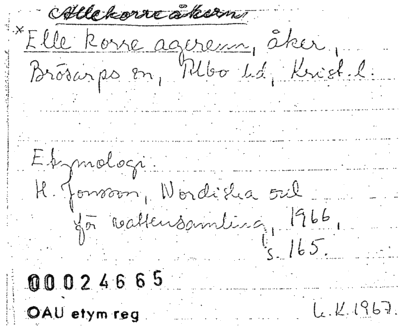 Ellekorreåkern
*Elle korre agerenn, åker,
Brösarps sn, Albo hd, Krist. l.
Etymologi.
H. Jonsson, Nordiska ord
för vattensamling, 1966,
s. 165.
00024665
OAU etym reg
L.K. 1967.